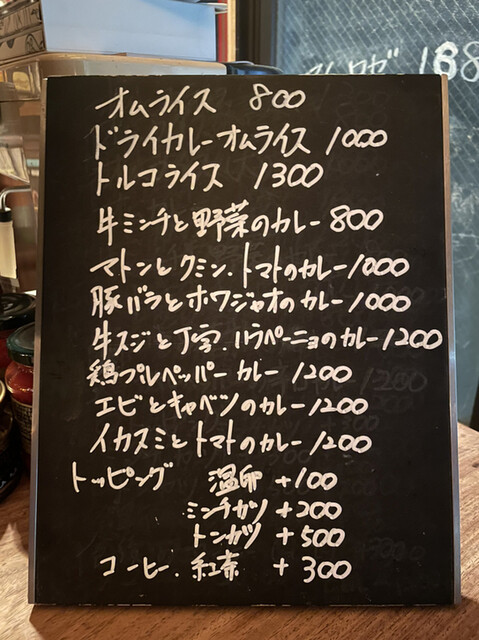 オムライス 800
ドライカレーオムライス 1000
トルコライス 1300
牛ミンチと野菜のカレー 800
マトンとクミン.トマトのカレー 1000
豚バラとホワジャオのカレー 1000
牛スジと丁字.ハラペーニョのカレー 1200
鶏プレペッパーカレー 1200
エビとキャベツのカレー 1200
イカスミとトマトのカレー 1200
トッピング 温卵 +100
ミンチカツ +200
トンカツ +500
コーヒー.紅茶 +300